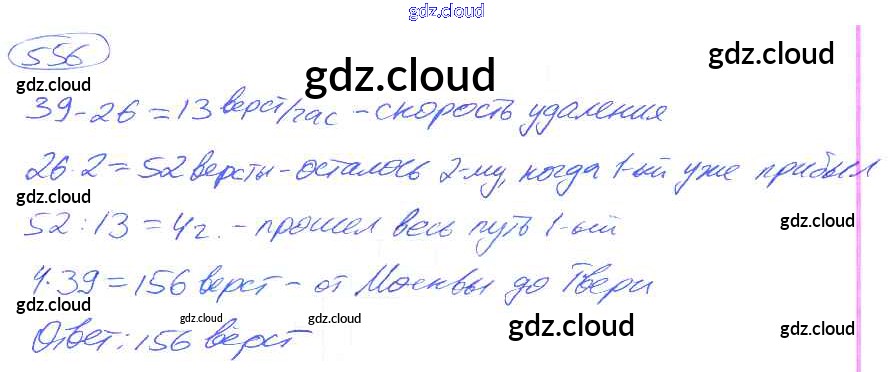 gdz.cloud
556
gdz.cloud
gdz.cloud
gdz.cloud
39-26=13 верст/час - скорость удаления
26·2=52 версты - осталось 2-му, когда 1-ый уже прибыл
gdz.cloud
52:13=4г. - прошел весь путь 1-ый
gdz.cloud
4·39=156 верст - от Москвы до Твери
gdz.cloud
gdz.cloud
gdz.cloud
gdz.cloud
gdz.cloud
Ответ: 156 вёрст